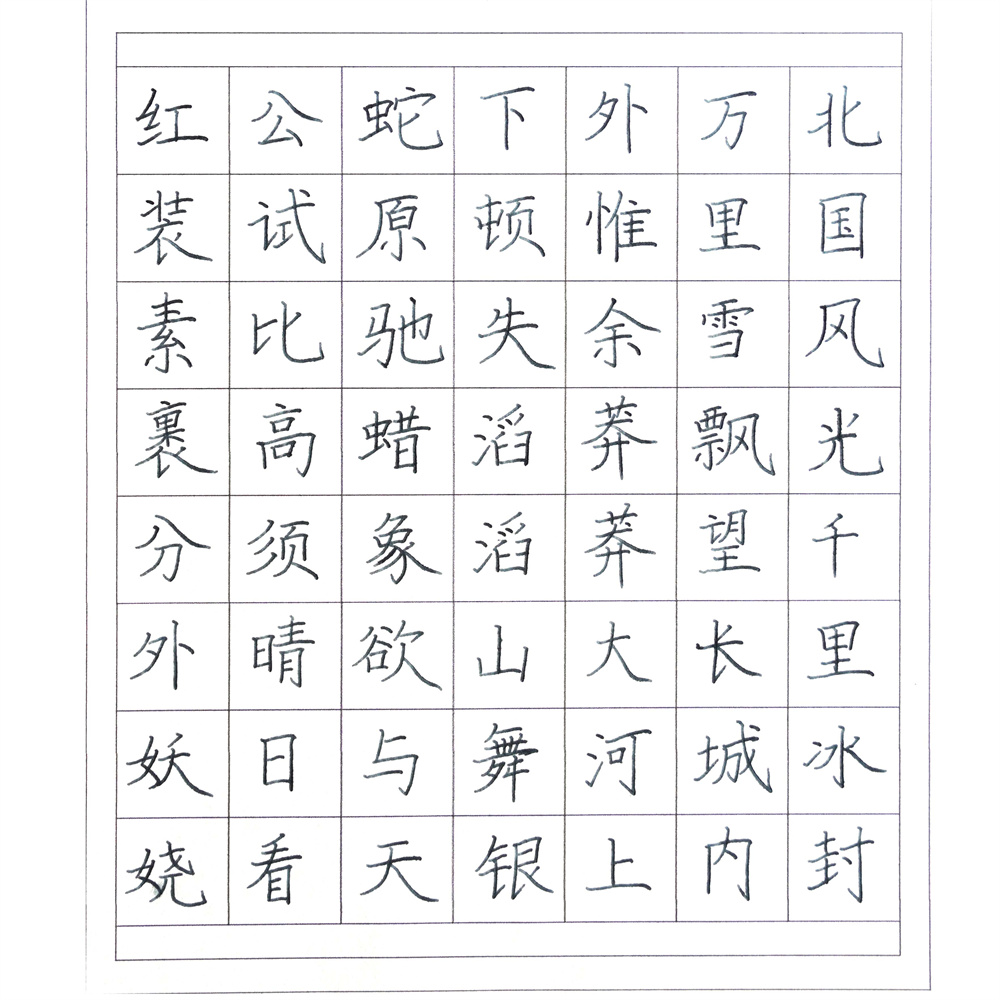 北国风光千里冰封
万里雪飘望长城内
外惟余莽莽大河上
下顿失滔滔山舞银
蛇原驰蜡象欲与天
公试比高须晴日看
红装素裹分外妖娆